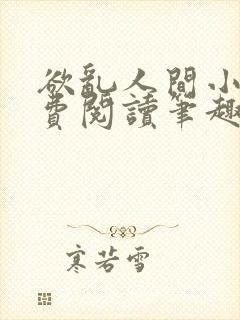 欲亂人間小
費閱讀筆趣
寒若雪